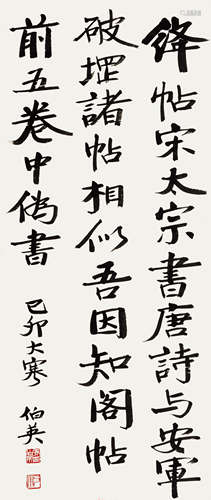 绛帖宋太宗書唐詩与安軍
破堽諸帖相似吾因知閣帖
前五卷中偽書
己卯大寒 伯英